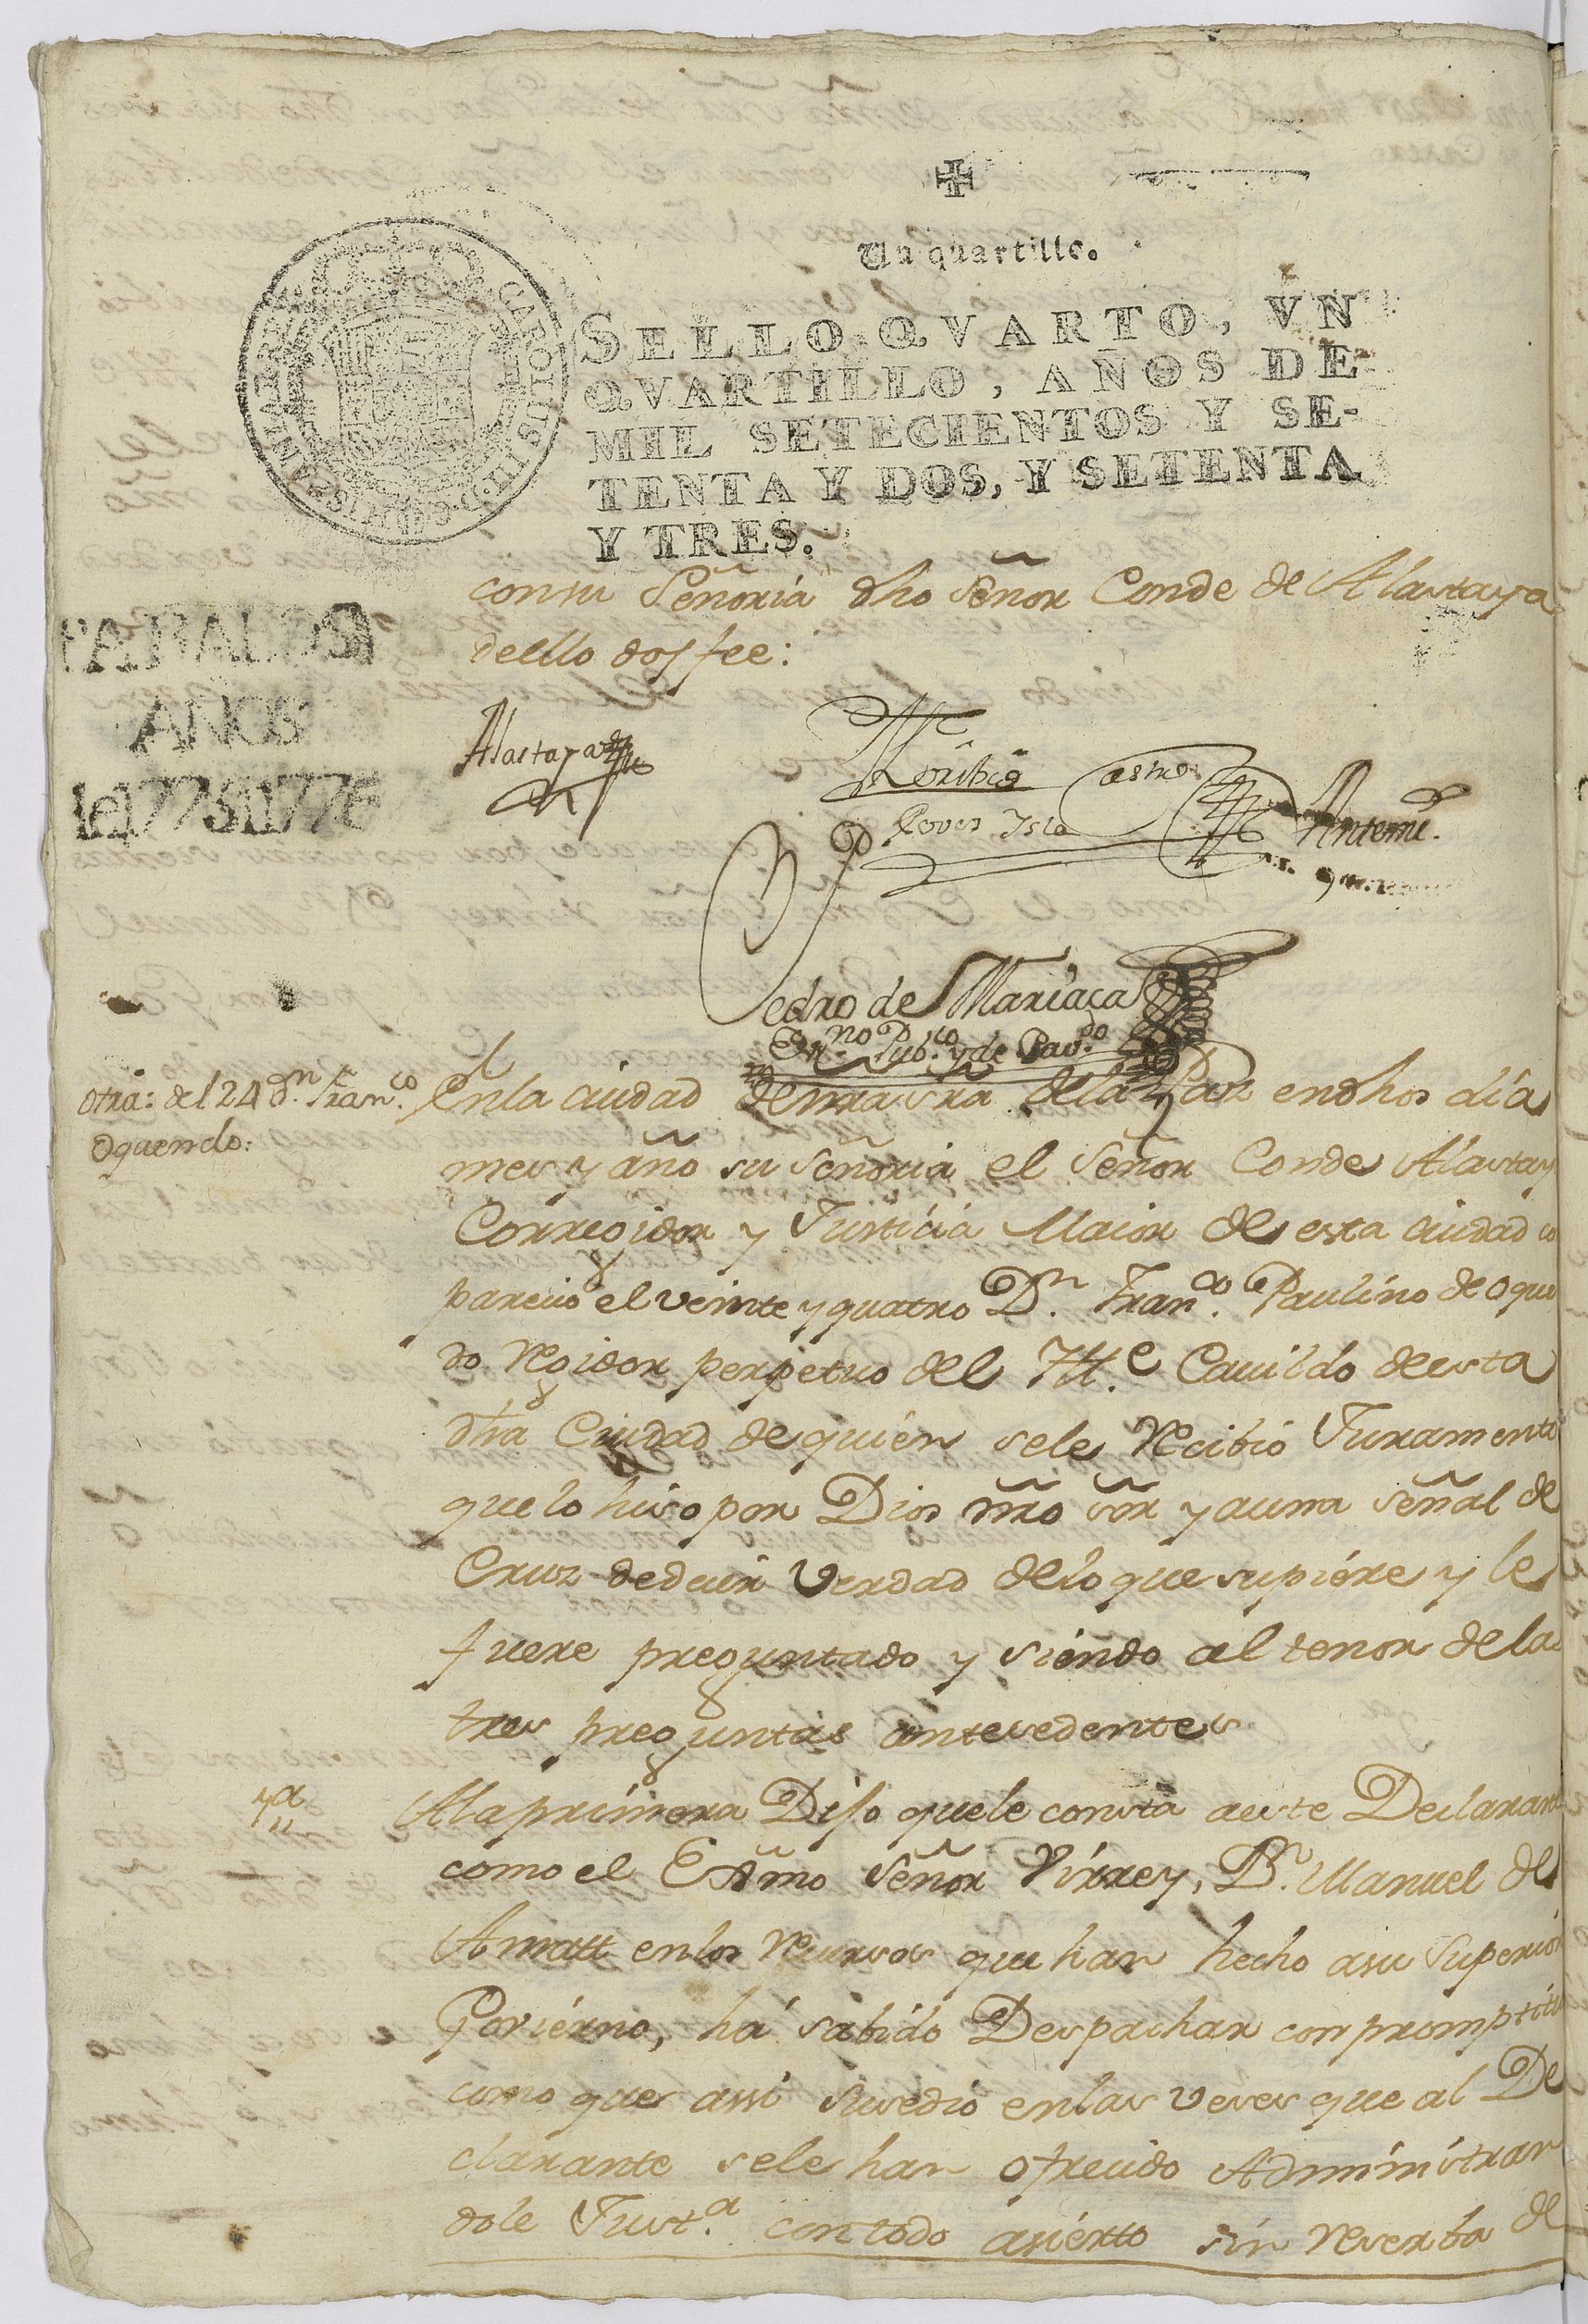 Un quartillo.
SELLO QVARTO, VN
QVARTILLO, AÑOS DE
MIL SETECIENTOS Y SE-
TENTA Y DOS, Y SETENTA
Y TRES.
con su Señoria dho Señor Conde de Alastaya
dello doy fee:
PARA LOS
AÑOS
Alastaya
Toribio
Castro
Antemi.
Pedro de Mariaca
Esn.no Pub.co y de Cav.do
otra: del 24 Dn. Fran.co
Oquendo:
En la ciudad de nra sra de la Paz en dhos dia
mes y año su señoria el Señor Conde Alastay
Corregidor y Justicia Maior de esta ciudad co
parecio el veinte y quatro Dn. Fran.co Paulino de oque
do Regidor perpetuo del Itt.e Cavildo de esta
dha Ciudad de quien se le Recibió Juramento
que lo hiso por Dios nro sor y a una señal de
Cruz de decir verdad de lo que supiére y le
fuere preguntado y siéndo al tenor de la
tres preguntas antesedentes
1a
A la primera Dijo que le consta a este Declarant
como el Exmo Señor Virrey, Dn. Manuel de
Amatt en los Recursos que han hecho a su Superior
Goviérno, há sabido Despachar con promptitu
como que assi susedio en las veses que al De
clarante se le han ofrecido Administran
dole Just.a con todo asiérto sin Reserba de